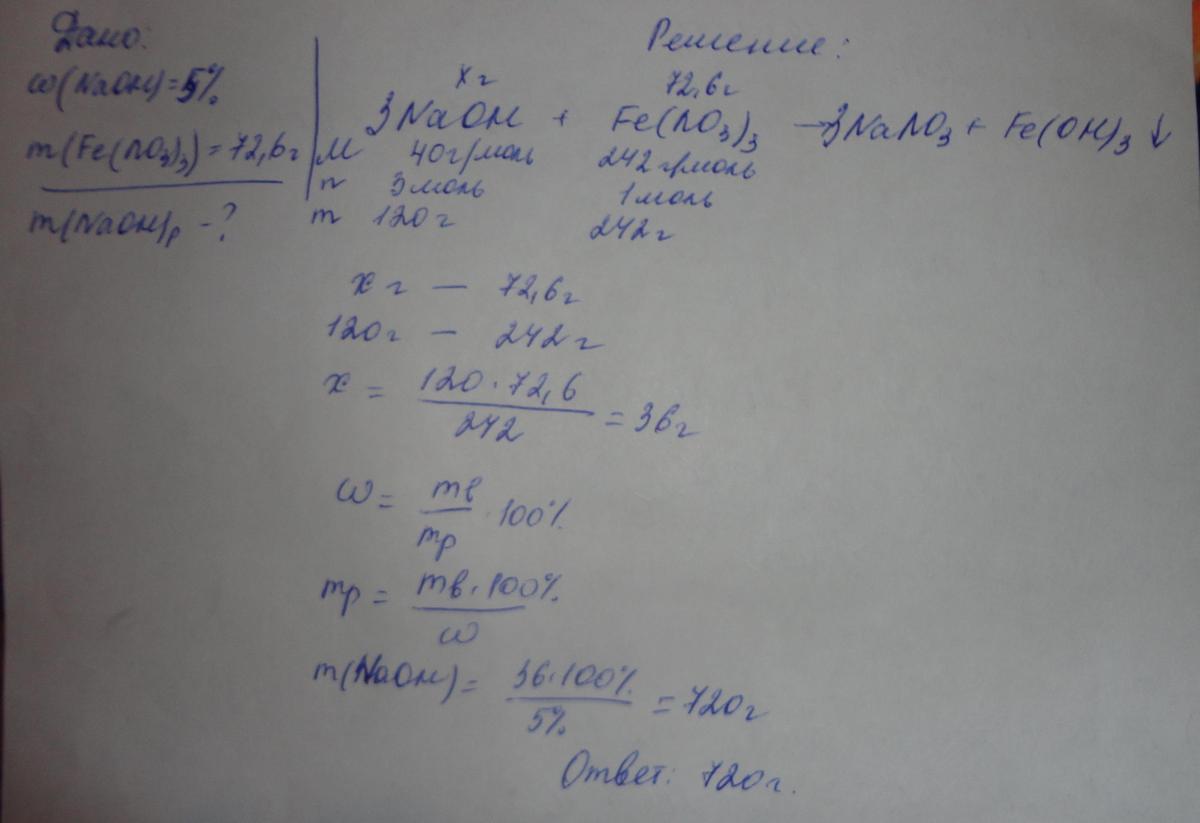 Дано:
ω(NaOH)=5%
m(Fe(NO3)3)=72,6г
m(NaOH)р -?
Решение:
xг 72,6г
3NaOH + Fe(NO3)3 → 3NaNO3 + Fe(OH)3 ↓
M 40г/моль 242г/моль
n 3моль 1моль
m 120г 242г
xг — 72,6г
120г — 242г
x = 120·72,6 / 242 = 36г
ω = mв / mр · 100%
mр = mв·100% / ω
m(NaOH) = 36·100% / 5% = 720г
Ответ: 720г.